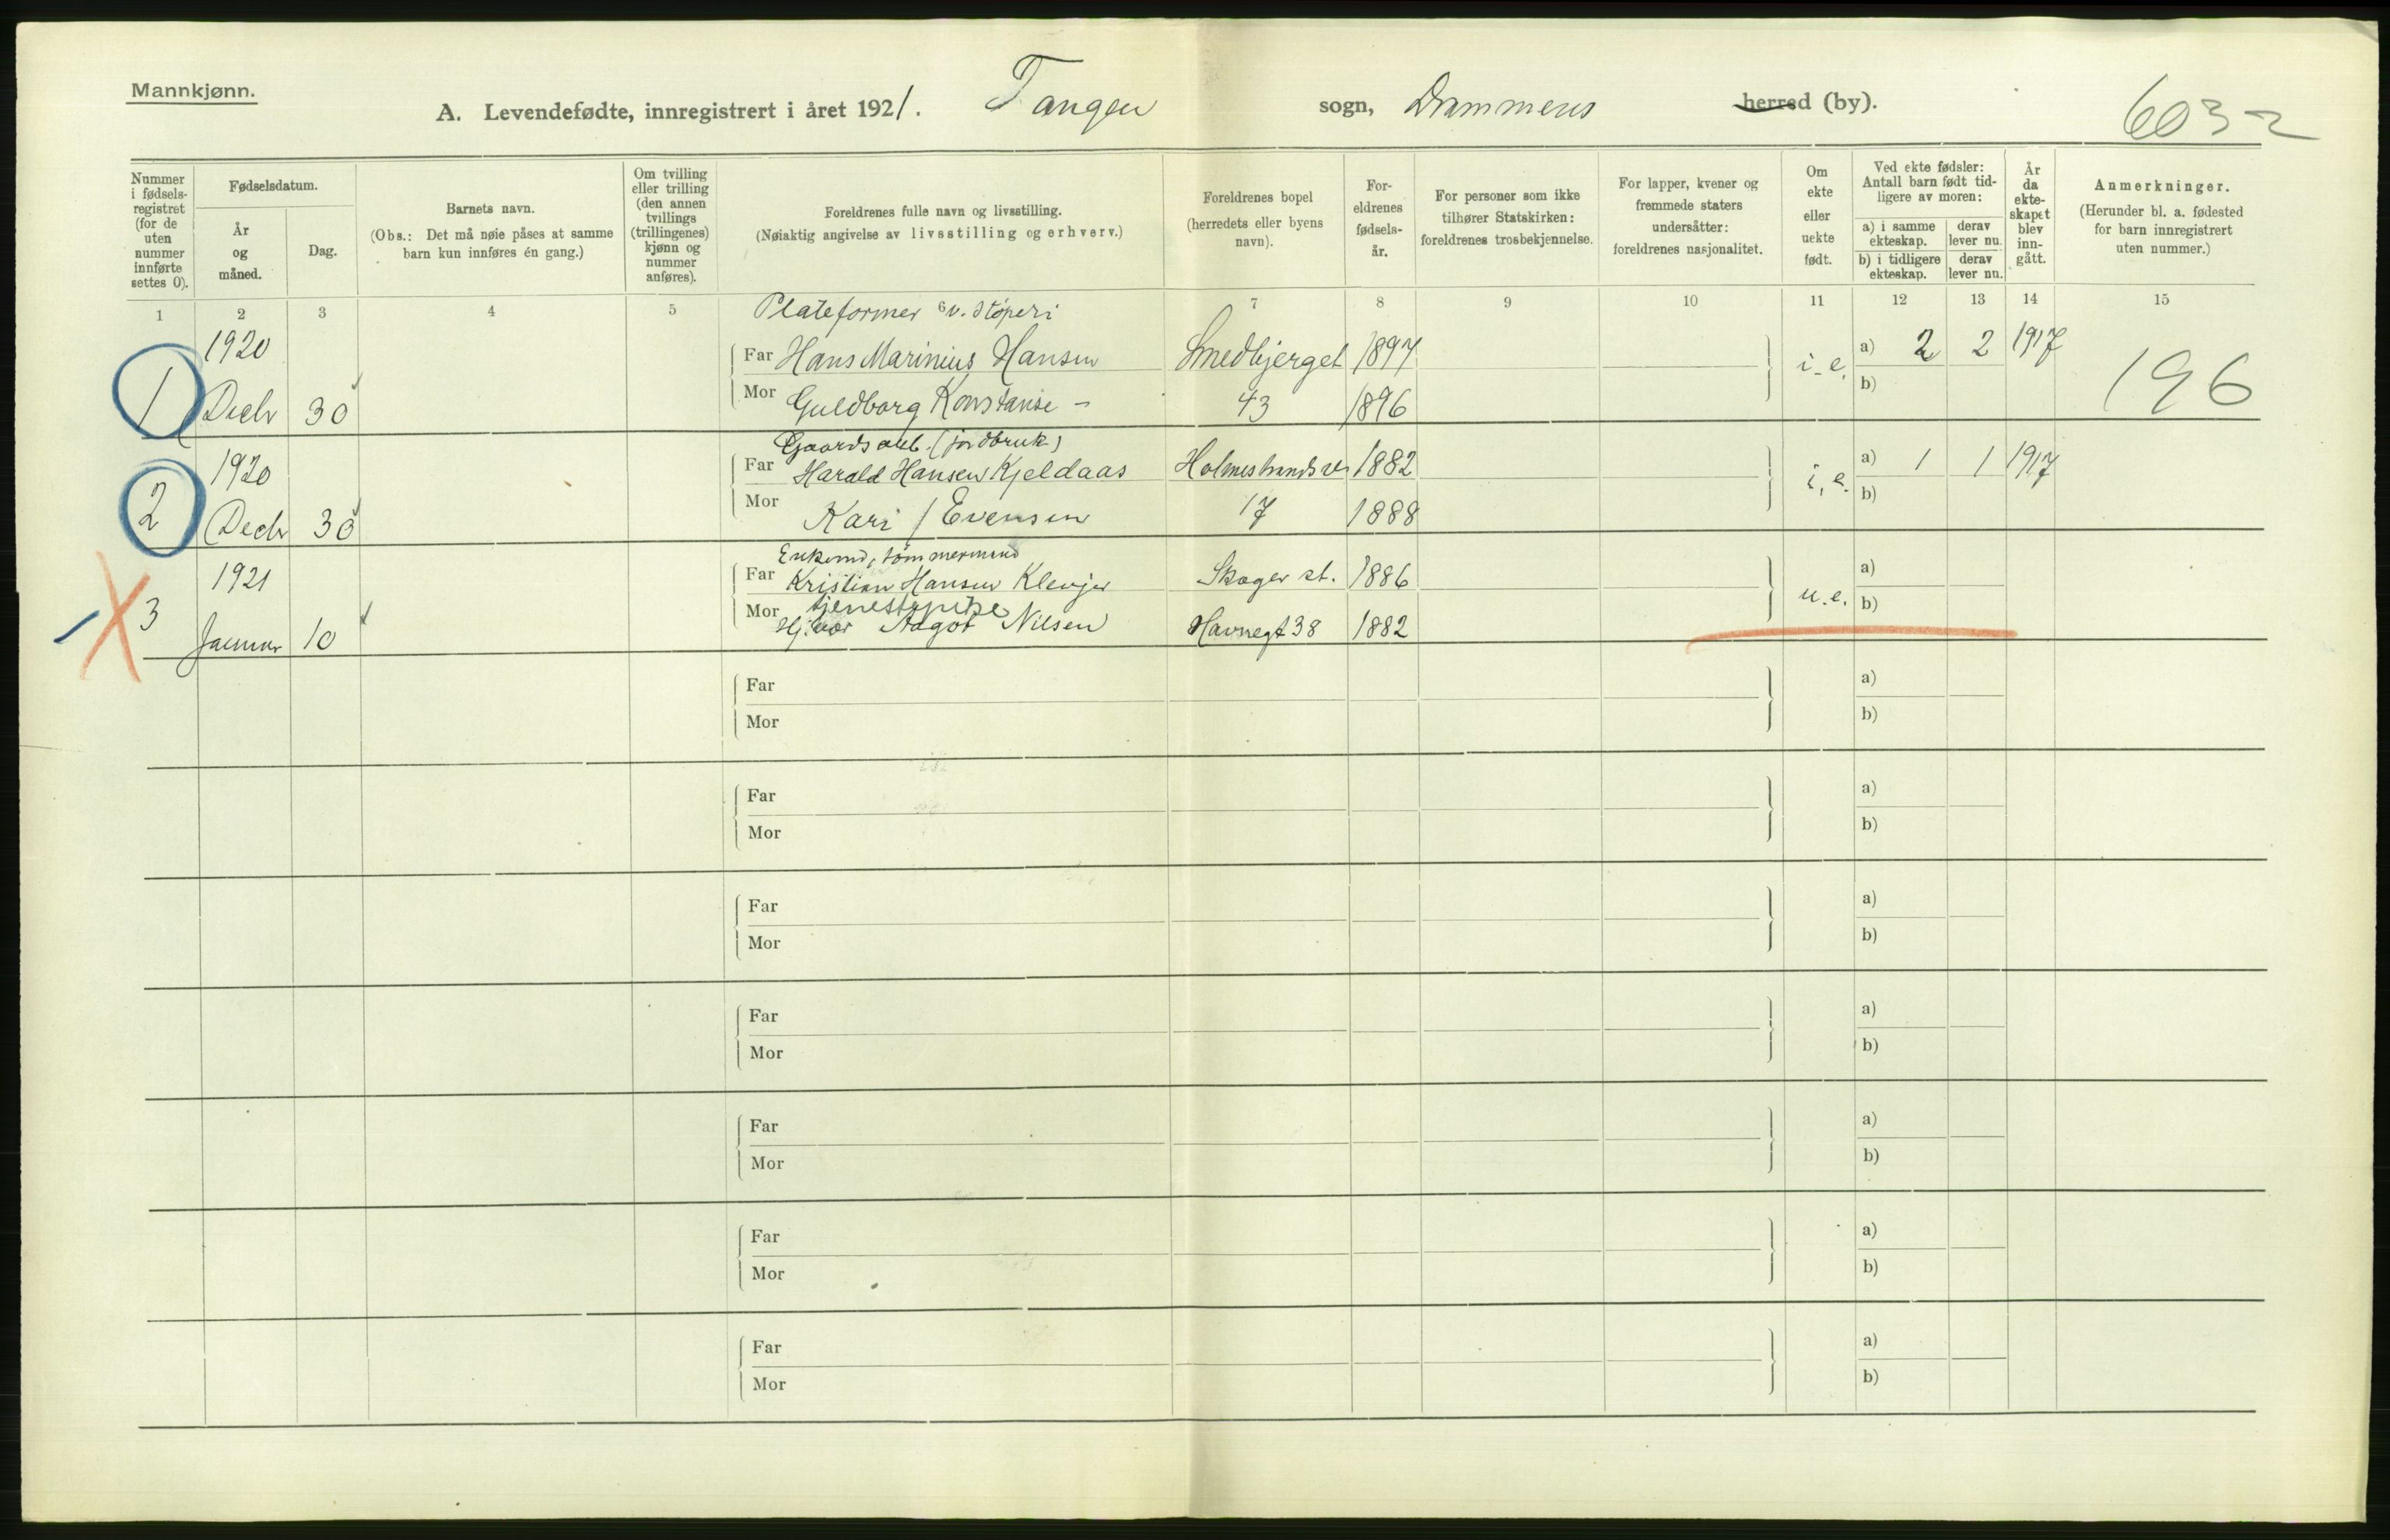 Mannkjønn.
A. Levendefødte, innregistrert i året 1921. Tangen sogn, Drammens herred (by).
603-2
Nummer i fødsels-registret (for de uten nummer innførte settes 0).
Fødselsdatum.
År og måned.
Dag.
Barnets navn.
(Obs.: Det må nøie påses at samme barn kun innføres én gang.)
Om tvilling eller trilling (den annen tvillings (trillingenes) kjønn og nummer anføres).
Foreldrenes fulle navn og livsstilling.
(Nøiaktig angivelse av livsstilling og erhverv.)
Foreldrenes bopel (herredets eller byens navn).
For-eldrenes fødsels-år.
For personer som ikke tilhører Statskirken: foreldrenes trosbekjennelse.
For lapper, kvener og fremmede staters undersåtter: foreldrenes nasjonalitet.
Om ekte eller uekte født.
Ved ekte fødsler: Antall barn født tid-ligere av moren:
a) i samme ekteskap.
derav lever nu.
b) i tidligere ekteskap.
derav lever nu.
År da ekte-skapet blev inn-gått.
Anmerkninger.
(Herunder bl. a. fødested for barn innregistrert uten nummer.)
1 2 3 4 5 6 7 8 9 10 11 12 13 14 15
Plateformer v. støperi
1920 Far Hans Marinius Hansen Smedbjerget 1897 a) 2 2 1917
1 Decbr 30 Mor Guldborg Konstanse - 43 1896 i.e. b) 196
Gaardsarb. (jordbruk)
1920 Far Harald Hansen Kjeldaas Holmestrandsv. 1882 a) 1 1 1917
2 Decbr 30 Mor Kari / Evensen 17 1888 i.e. b)
Enkemd, tømmermand
1921 Far Kristian Hansen Klevjer Skoger st. 1886 a)
3 tjenestepike u.e. b)
Januar 10 Mor Aagot Nilsen Havnegt 38 1882
Far a)
Mor b)
Far a)
Mor b)
Far a)
Mor b)
Far a)
Mor b)
Far a)
Mor b)
Far a)
Mor b)
Far a)
Mor b)